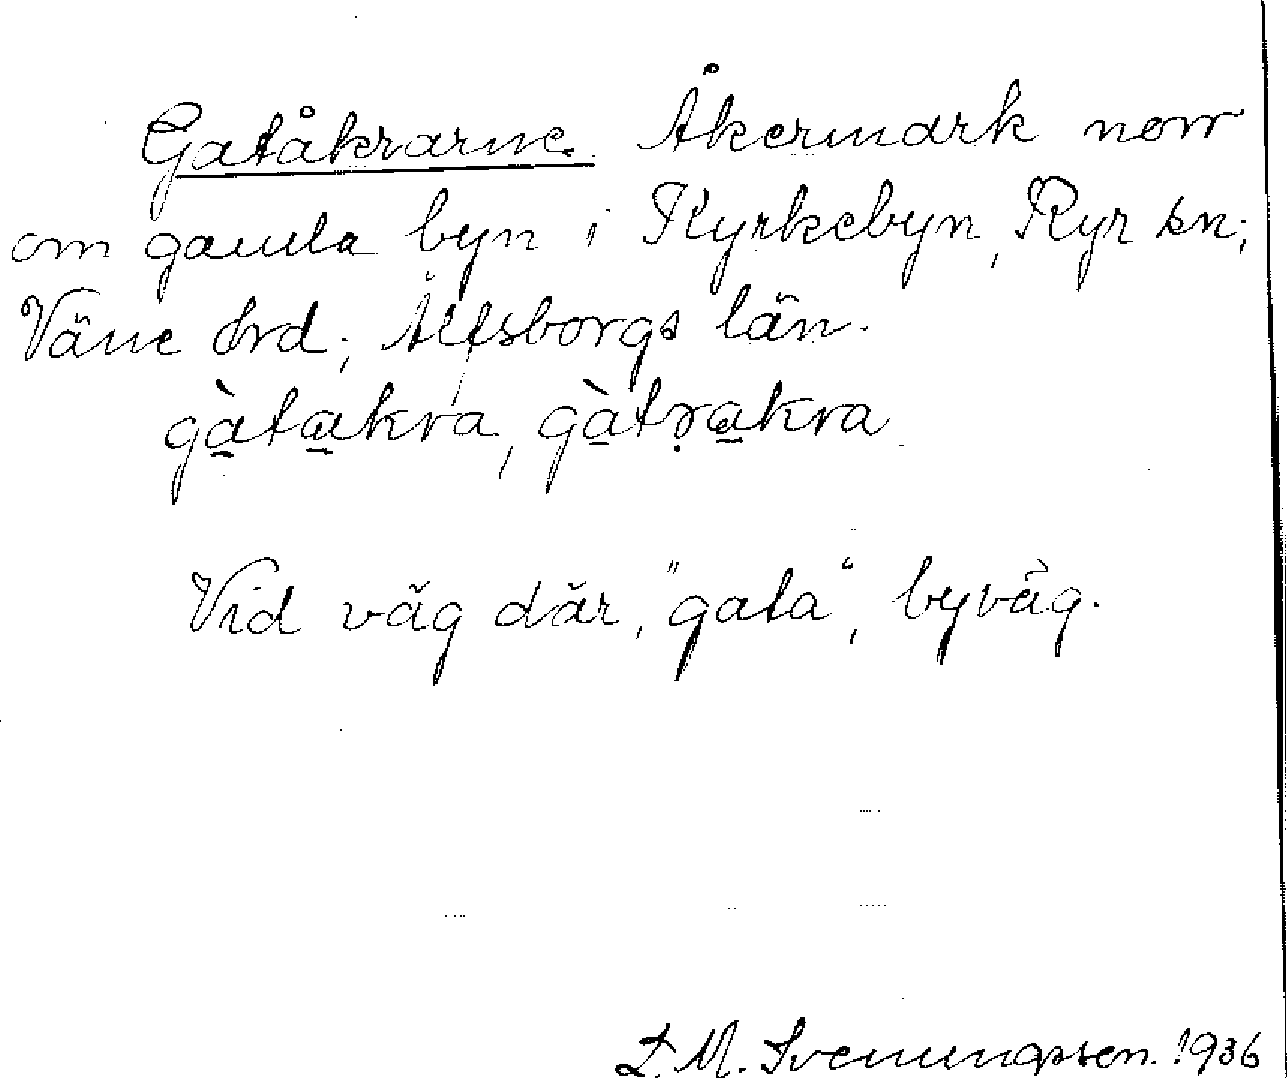 Gatåkrarne. Åkermark norr
om gamla byn i Kyrkebyn, Ryr sn;
Väne hrd; Älfsborgs län.
gàtakra, gàtrakra
Vid väg där, "gata", byväg.
L. M. Svenungsson. 1936